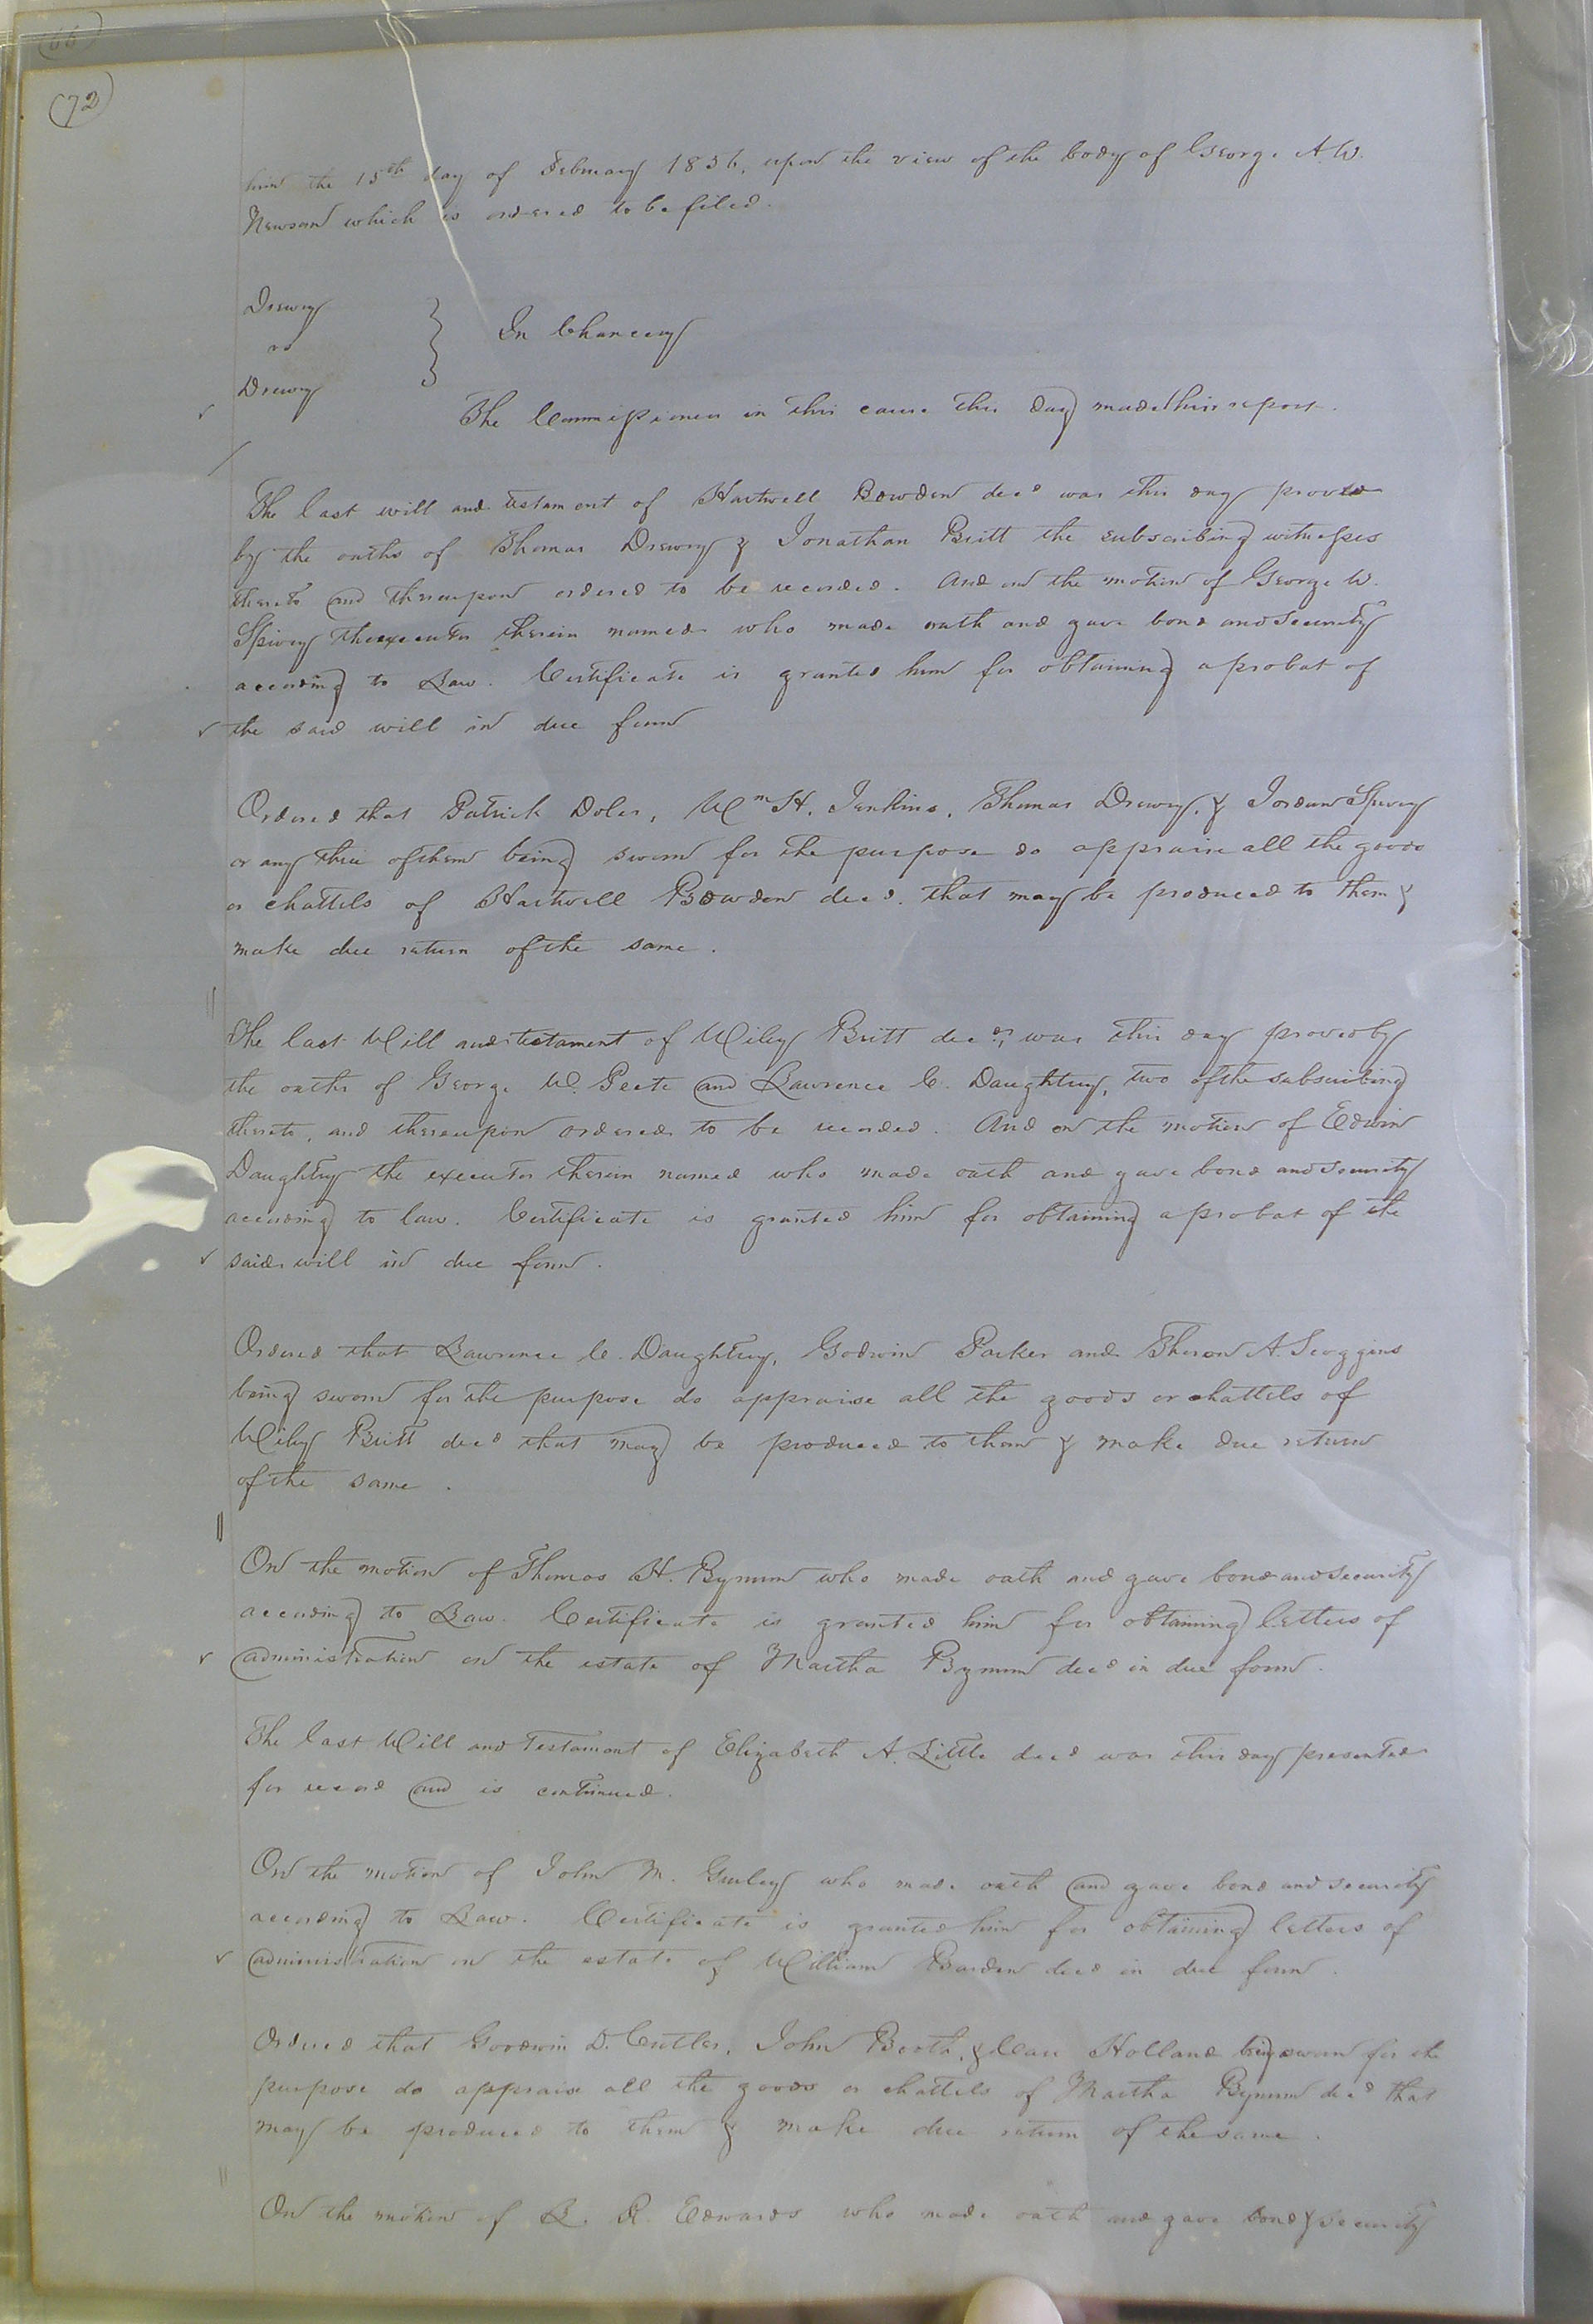 (72)
him the 15th day of February 1856, upon the view of the body of George A W.
Newsom which is ordered to be filed.
Drewry
vs
Drewry
In Chancery
The Commissioner in this cause this day made his report.
The last will and testament of Hartwell Bowden decd was this day proved
by the oaths of Thomas Drewry & Jonathan Britt the subscribing witnesses
thereto and thereupon ordered to be recorded. And on the motion of George W.
Spivey the executor therein named who made oath and gave bond and security
according to Law. Certificate is granted him for obtaining a probat of
the said will in due form
Ordered that Patrick Doles, Wm H. Jenkins, Thomas Drewry, & Jordan Spivey
or any three of them being sworn for the purpose do appraise all the goods
or chattels of Hartwell Bowden decd. that may be produced to them &
make due return of the same.
The last Will and testament of Wiley Britt decd, was this day proved by
the oaths of George W. Peete and Lawrence C. Daughtrey, two of the subscribing
thereto, and thereupon ordered to be recorded. And on the motion of Edwin
Daughtry the executor therein named who made oath and gave bond and security
according to law. Certificate is granted him for obtaining a probat of the
said will in due form.
Ordered that Lawrence C. Daughtrey, Godwin Parker and Theron A. Scoggins
being sworn for the purpose do appraise all the goods or chattels of
Wiley Britt decd that may be produced to them & make due return
of the same.
On the motion of Thomas H. Bynum who made oath and gave bond and security
according to Law. Certificate is granted him for obtaining letters of
administration on the estate of Martha Bynum decd in due form.
The last Will and Testament of Elizabeth A. Little decd was this day presented
for record and is continued.
On the motion of John M. Gurley who made oath and gave bond and security
according to Law. Certificate is granted him for obtaining letters of
administration on the estate of William Barden decd in due form.
Ordered that Goodwin D. Cutler, John Booth, & Carr Holland being sworn for the
purpose do appraise all the goods or chattels of Martha Bynum decd that
may be produced to them & make due return of the same.
On the motion of L. R. Edwards who made oath and gave bond & security